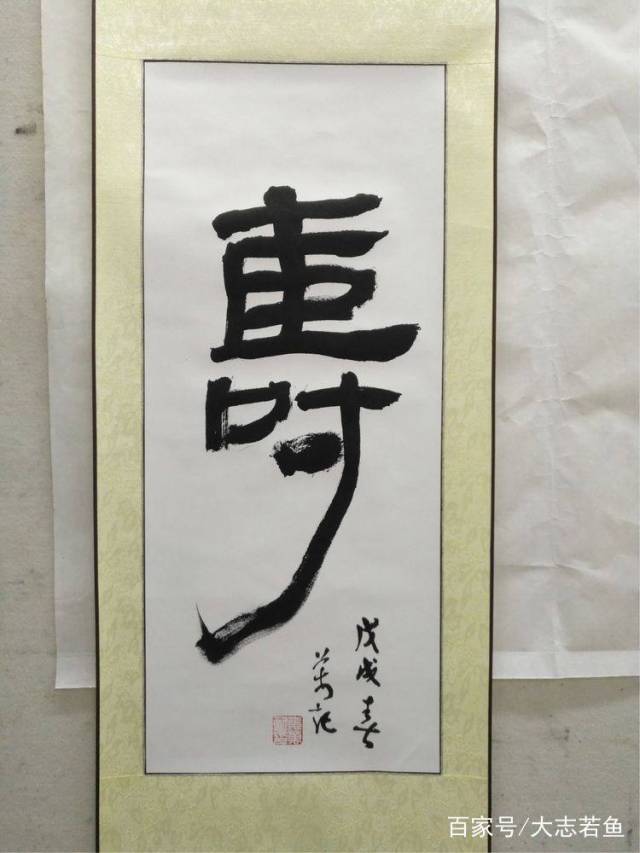 壽
戊戌春
萬記
百家号/大志若鱼